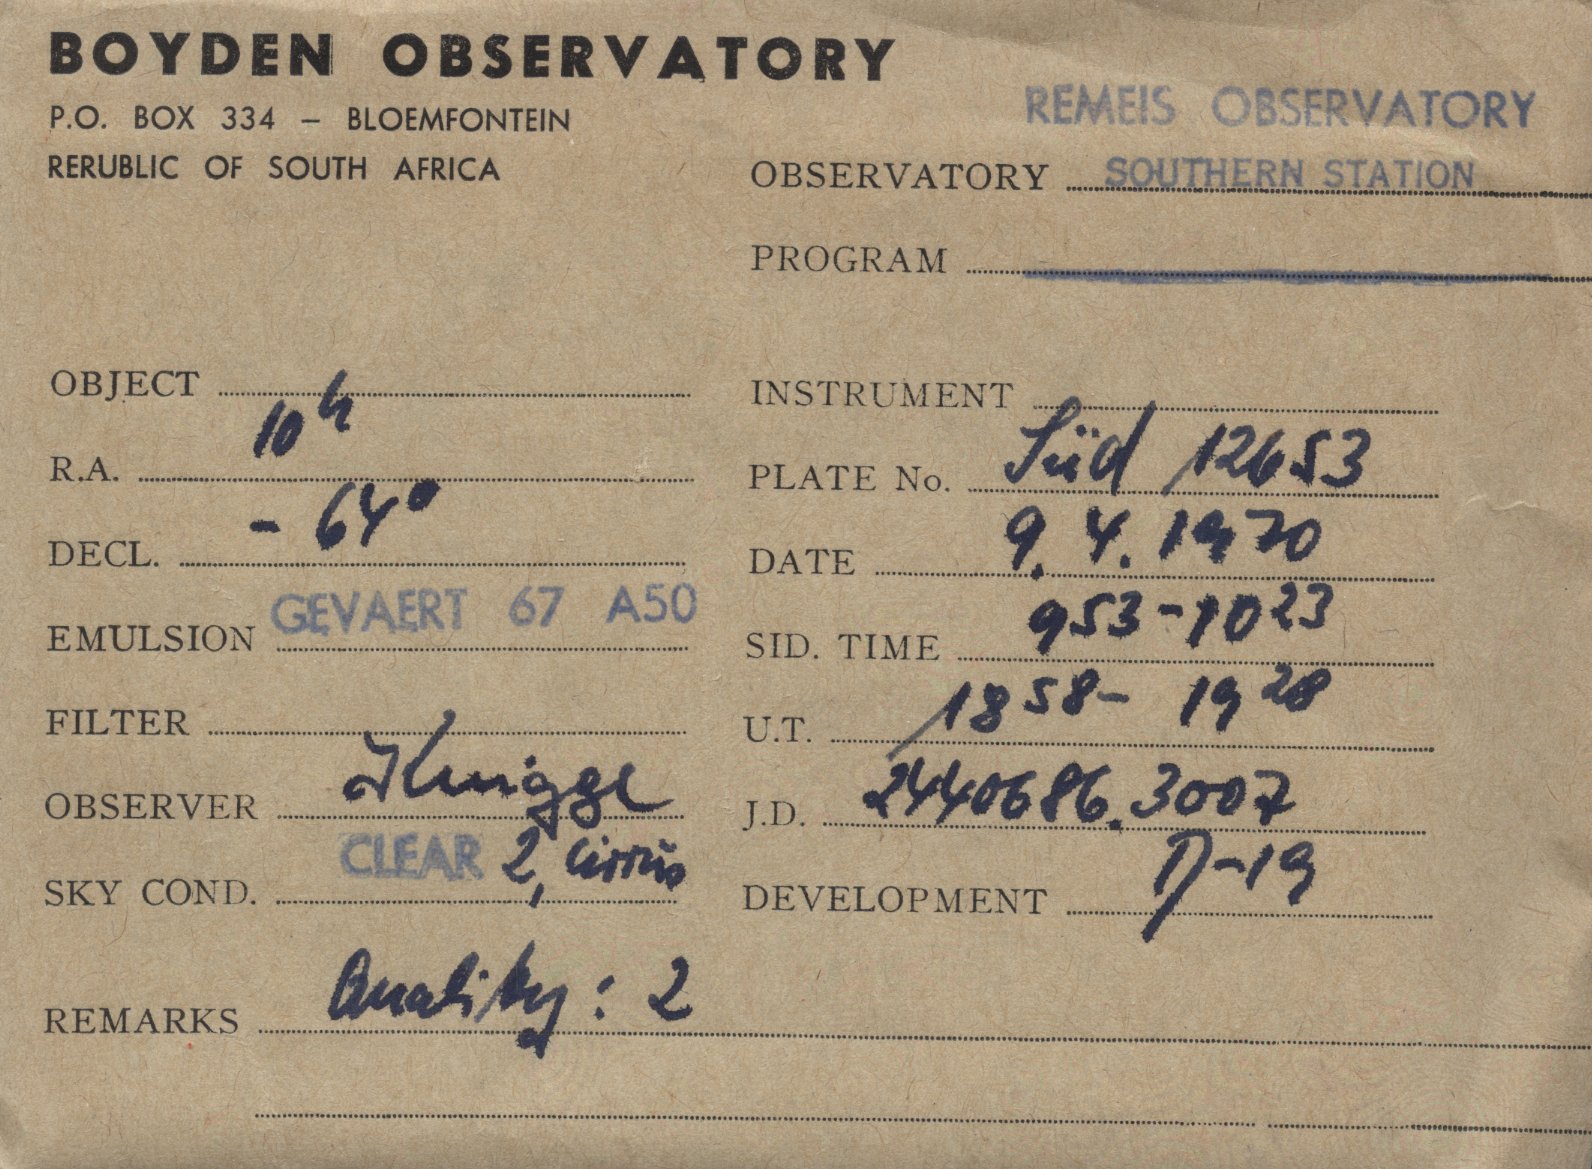 BOYDEN OBSERVATORY
P.O. BOX 334 – BLOEMFONTEIN
RERUBLIC OF SOUTH AFRICA
REMEIS OBSERVATORY
OBSERVATORY SOUTHERN STATION
PROGRAM
OBJECT
R.A. 10h
DECL. - 64°
EMULSION GEVAERT 67 A50
FILTER
OBSERVER Knigge
SKY COND. CLEAR 2, Cirrus
INSTRUMENT
PLATE No. Süd 12653
DATE 9.4.1970
SID. TIME 953-1023
U.T. 1858- 1928
J.D. 2440686.3007
DEVELOPMENT D-19
REMARKS Quality: 2